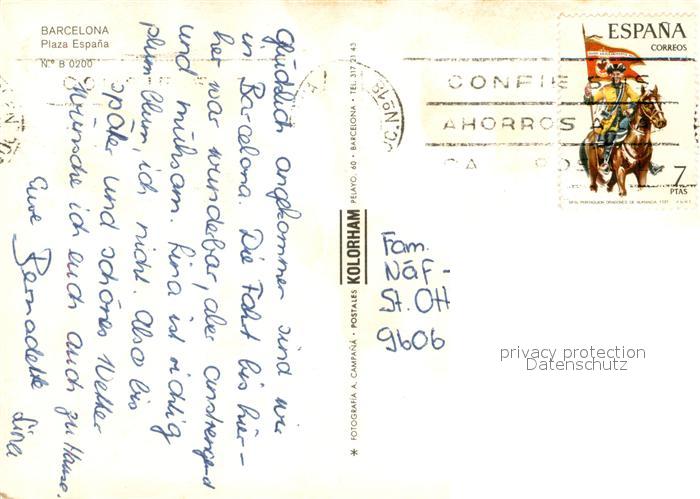 BARCELONA
Plaza España
N.º B 0200
Glücklich angekommen sind wir
in Barcelona. Die Fahrt bis hier-
her war wundebar, aber anstrengend
und mühsam. Lina ist richtig
ich nicht. Also bis
später und schönes Wetter
wünsche ich euch auch zu Hause.
Eure Bernadette
Lina
* FOTOGRAFÍA A. CAMPAÑÁ · POSTALES KOLORHAM PELAYO, 60 · BARCELONA · TEL. 317 21 43
ESPAÑA
CORREOS
7
PTAS
CONFIE SUS
AHORROS A
CA
Fam.
Näf-
St. Ott
9606
privacy protection
Datenschutz